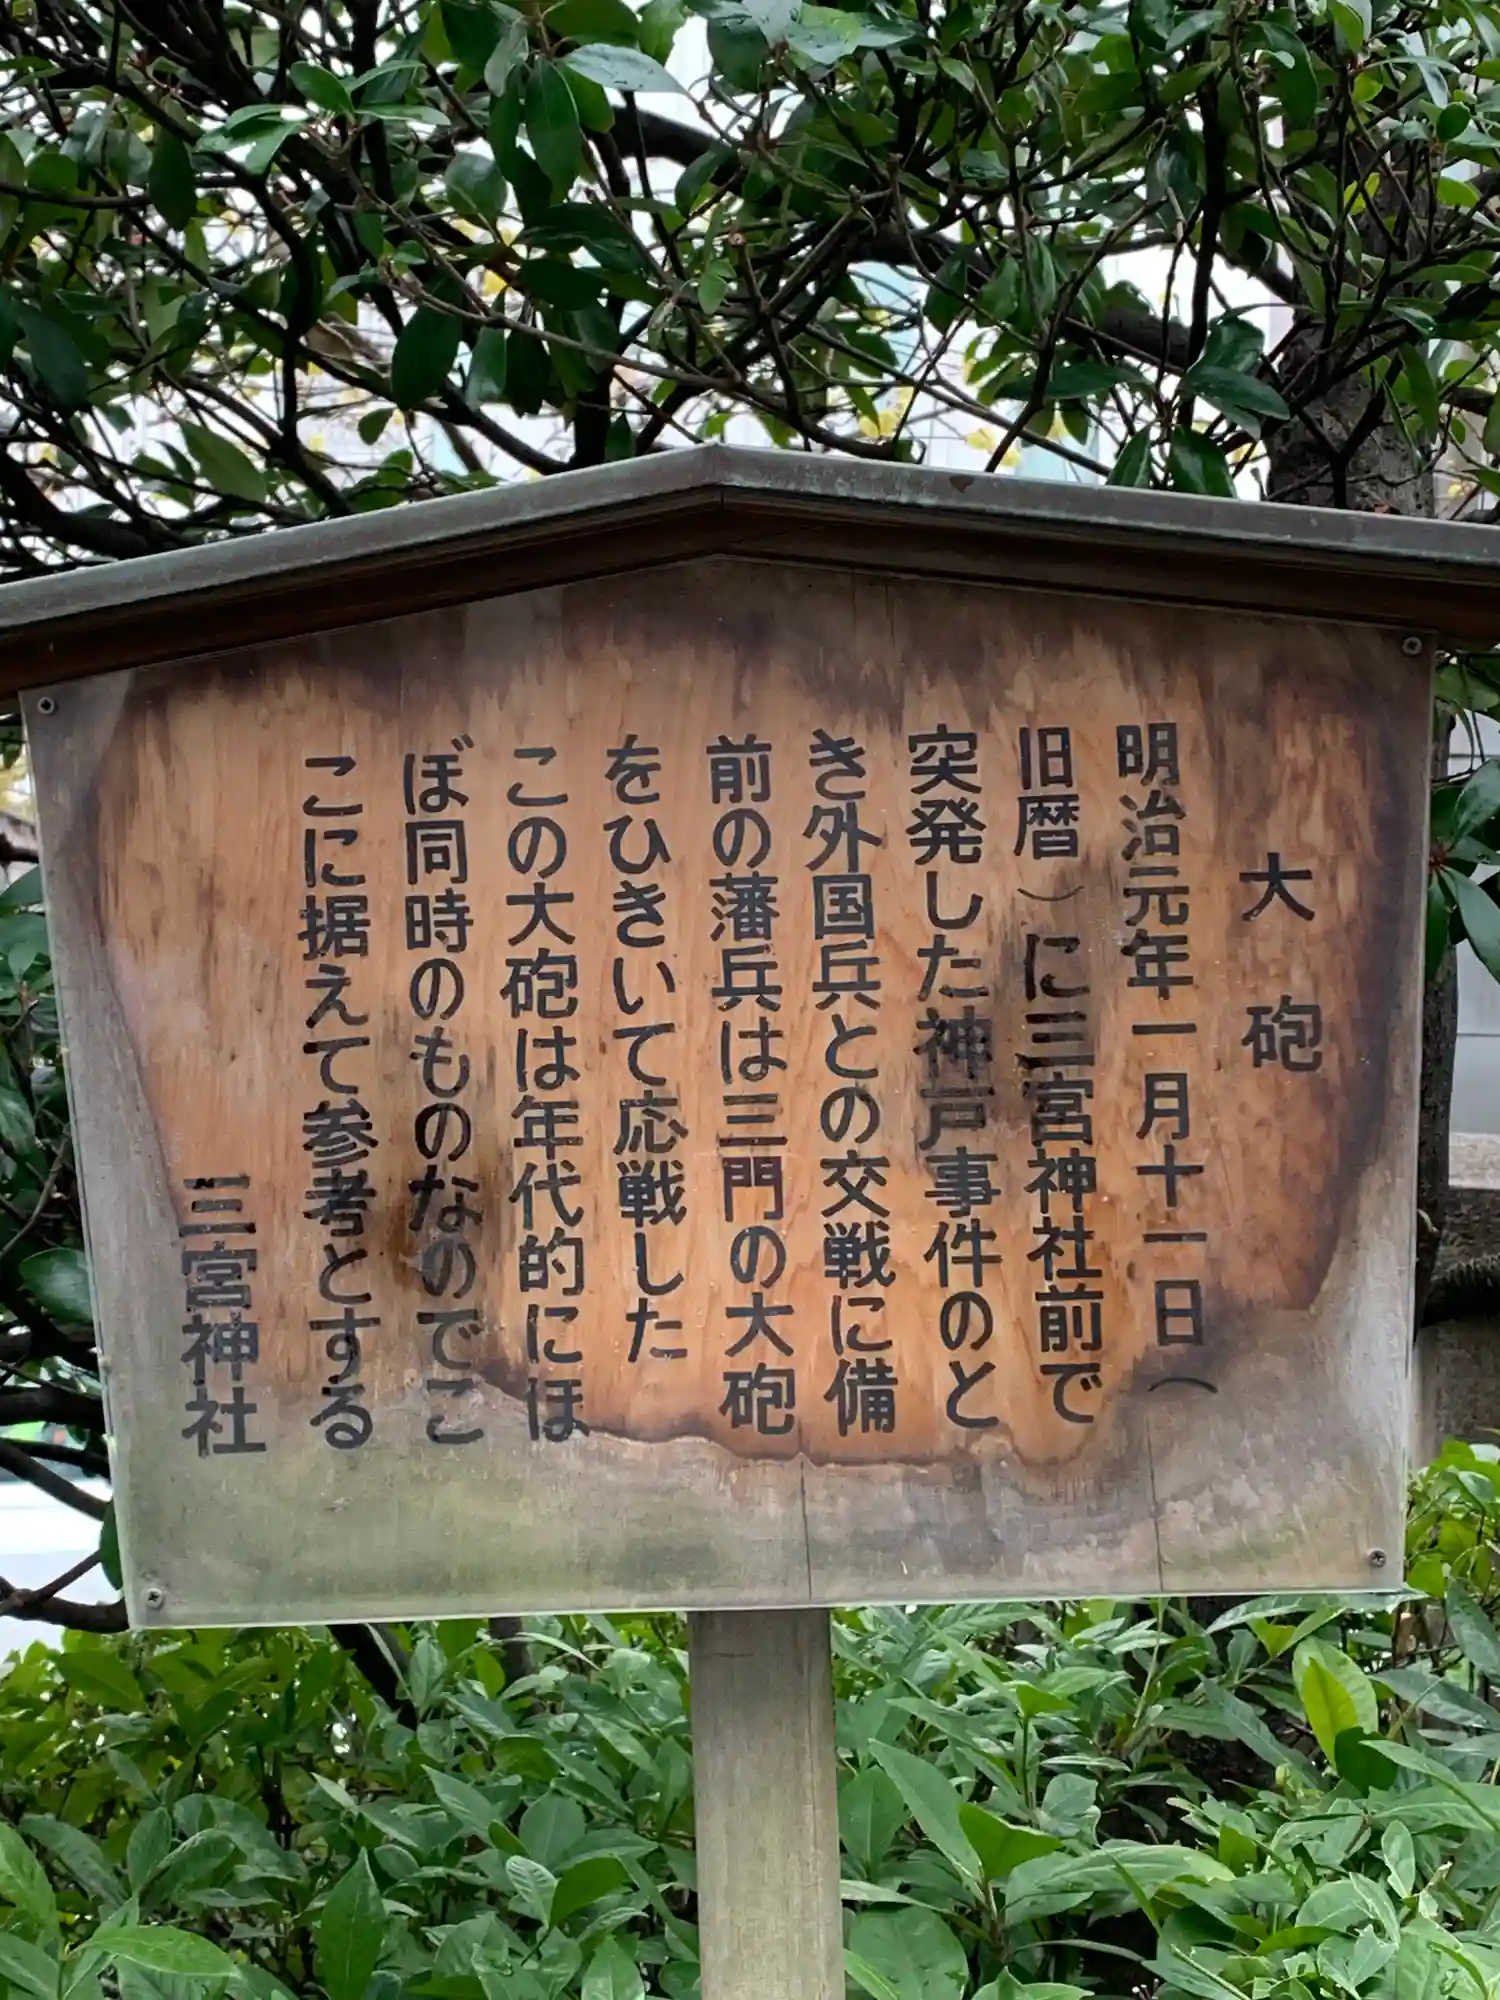 大砲
明治元年一月十一日（
旧暦）に三宮神社前で
突発した神戸事件のと
き外国兵との交戦に備
前の藩兵は三門の大砲
をひきいて応戦した
この大砲は年代的にほ
ぼ同時のものなのでこ
こに据えて参考とする
三宮神社